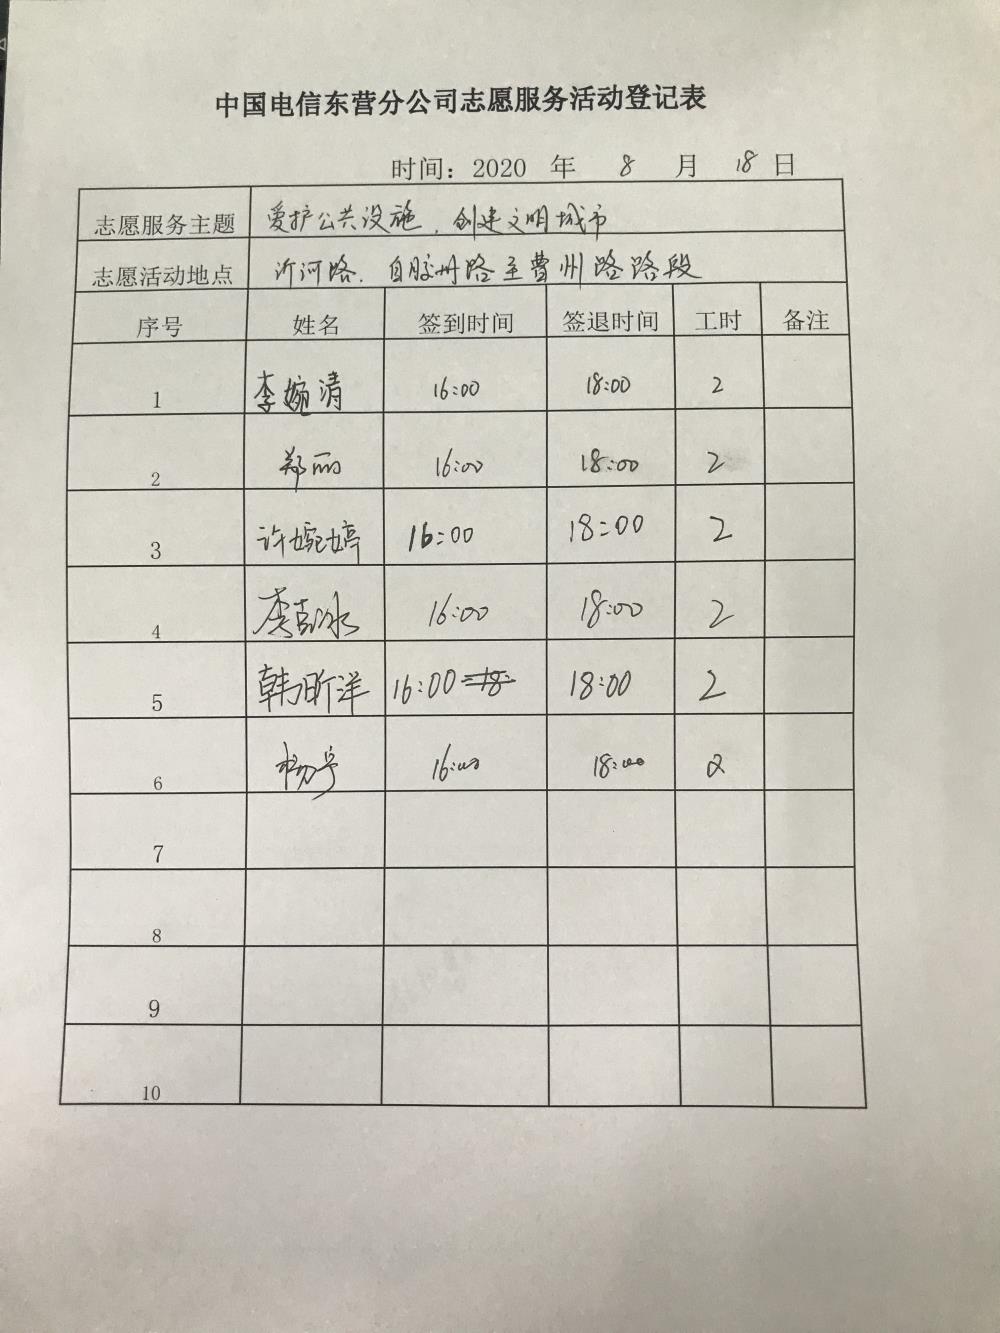 中国电信东营分公司志愿服务活动登记表
时间：2020 年 8 月 18 日
志愿服务主题 爱护公共设施，创建文明城市
志愿活动地点 沂河路，自胶州路至曹州路路段
序号 姓名 签到时间 签退时间 工时 备注
1 李婉清 16:00 18:00 2
2 郑丽 16:00 18:00 2
3 许婉婷 16:00 18:00 2
4 李彭冰 16:00 18:00 2
5 韩昕洋 16:00 18:00 2
6 杨宁 16:00 18:00 2
7
8
9
10